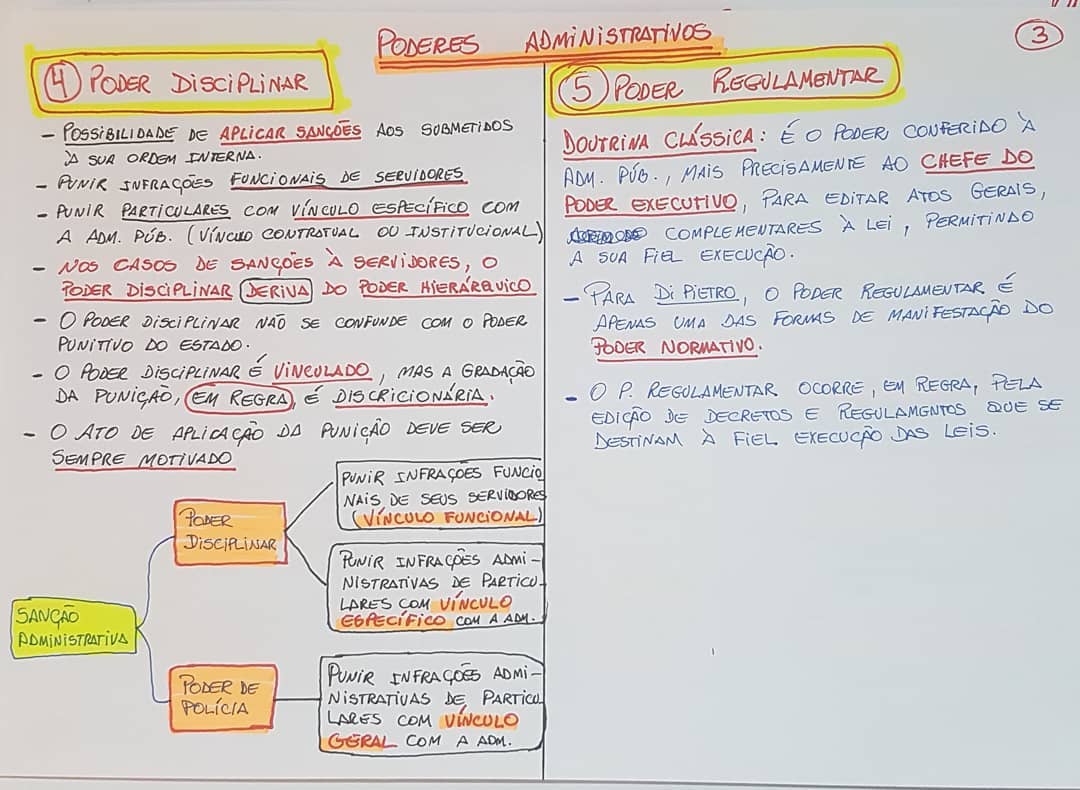 PODERES ADMINISTRATIVOS
3
4 PODER DISCIPLINAR
- POSSIBILIDADE DE APLICAR SANÇÕES AOS SUBMETIDOS
À SUA ORDEM INTERNA.
- PUNIR INFRAÇÕES FUNCIONAIS DE SERVIDORES
- PUNIR PARTICULARES COM VÍNCULO ESPECÍFICO COM
A ADM. PÚB. (VÍNCULO CONTRATUAL OU INSTITUCIONAL)
- NOS CASOS DE SANÇÕES À SERVIDORES, O
PODER DISCIPLINAR DERIVA DO PODER HIERÁRQUICO
- O PODER DISCIPLINAR NÃO SE CONFUNDE COM O PODER
PUNITIVO DO ESTADO.
- O PODER DISCIPLINAR É VINCULADO, MAS A GRADAÇÃO
DA PUNIÇÃO, EM REGRA, É DISCRICIONÁRIA.
- O ATO DE APLICAÇÃO DA PUNIÇÃO DEVE SER
SEMPRE MOTIVADO
SANÇÃO
ADMINISTRATIVA
PODER
DISCIPLINAR
PUNIR INFRAÇÕES FUNCIO
NAIS DE SEUS SERVIDORES
(VÍNCULO FUNCIONAL)
PUNIR INFRAÇÕES ADMI-
NISTRATIVAS DE PARTICU-
LARES COM VÍNCULO
ESPECÍFICO COM A ADM.
PODER DE
POLÍCIA
PUNIR INFRAÇÕES ADMI-
NISTRATIVAS DE PARTICU
LARES COM VÍNCULO
GERAL COM A ADM.
5 PODER REGULAMENTAR
DOUTRINA CLÁSSICA: É O PODER CONFERIDO À
ADM. PÚB., MAIS PRECISAMENTE AO CHEFE DO
PODER EXECUTIVO, PARA EDITAR ATOS GERAIS,
COMPLEMENTARES À LEI, PERMITINDO
A SUA FIEL EXECUÇÃO.
- PARA DI PIETRO, O PODER REGULAMENTAR É
APENAS UMA DAS FORMAS DE MANIFESTAÇÃO DO
PODER NORMATIVO.
- O P. REGULAMENTAR OCORRE, EM REGRA, PELA
EDIÇÃO DE DECRETOS E REGULAMENTOS QUE SE
DESTINAM À FIEL EXECUÇÃO DAS LEIS.